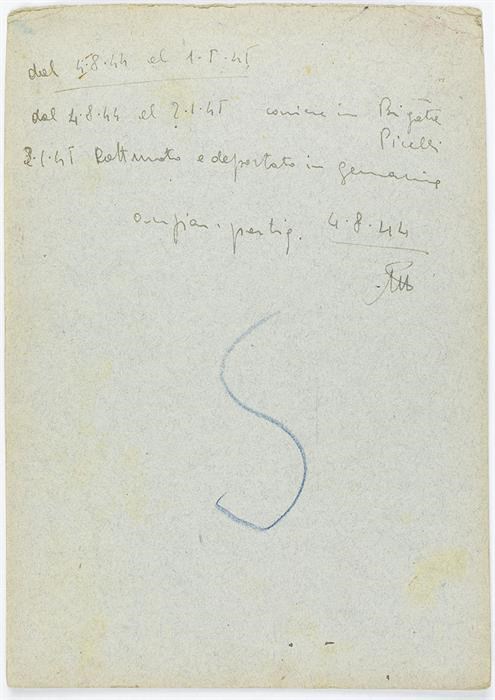 dal 4.8.44 al 1.5.45
dal 4.8.44 al 2.1.45 corriere in Brigata
Picelli
3.1.45 Rattrato e deportato in Germania
partig. 4.8.44
S